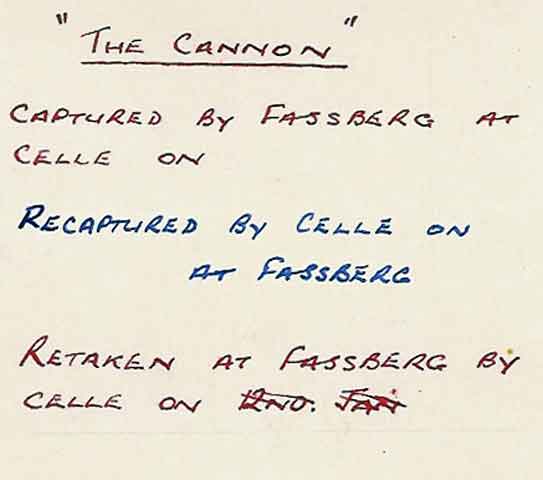 "THE CANNON"
CAPTURED BY FASSBERG AT
CELLE ON
RECAPTURED BY CELLE ON
AT FASSBERG
RETAKEN AT FASSBERG BY
CELLE ON 2ND. JAN